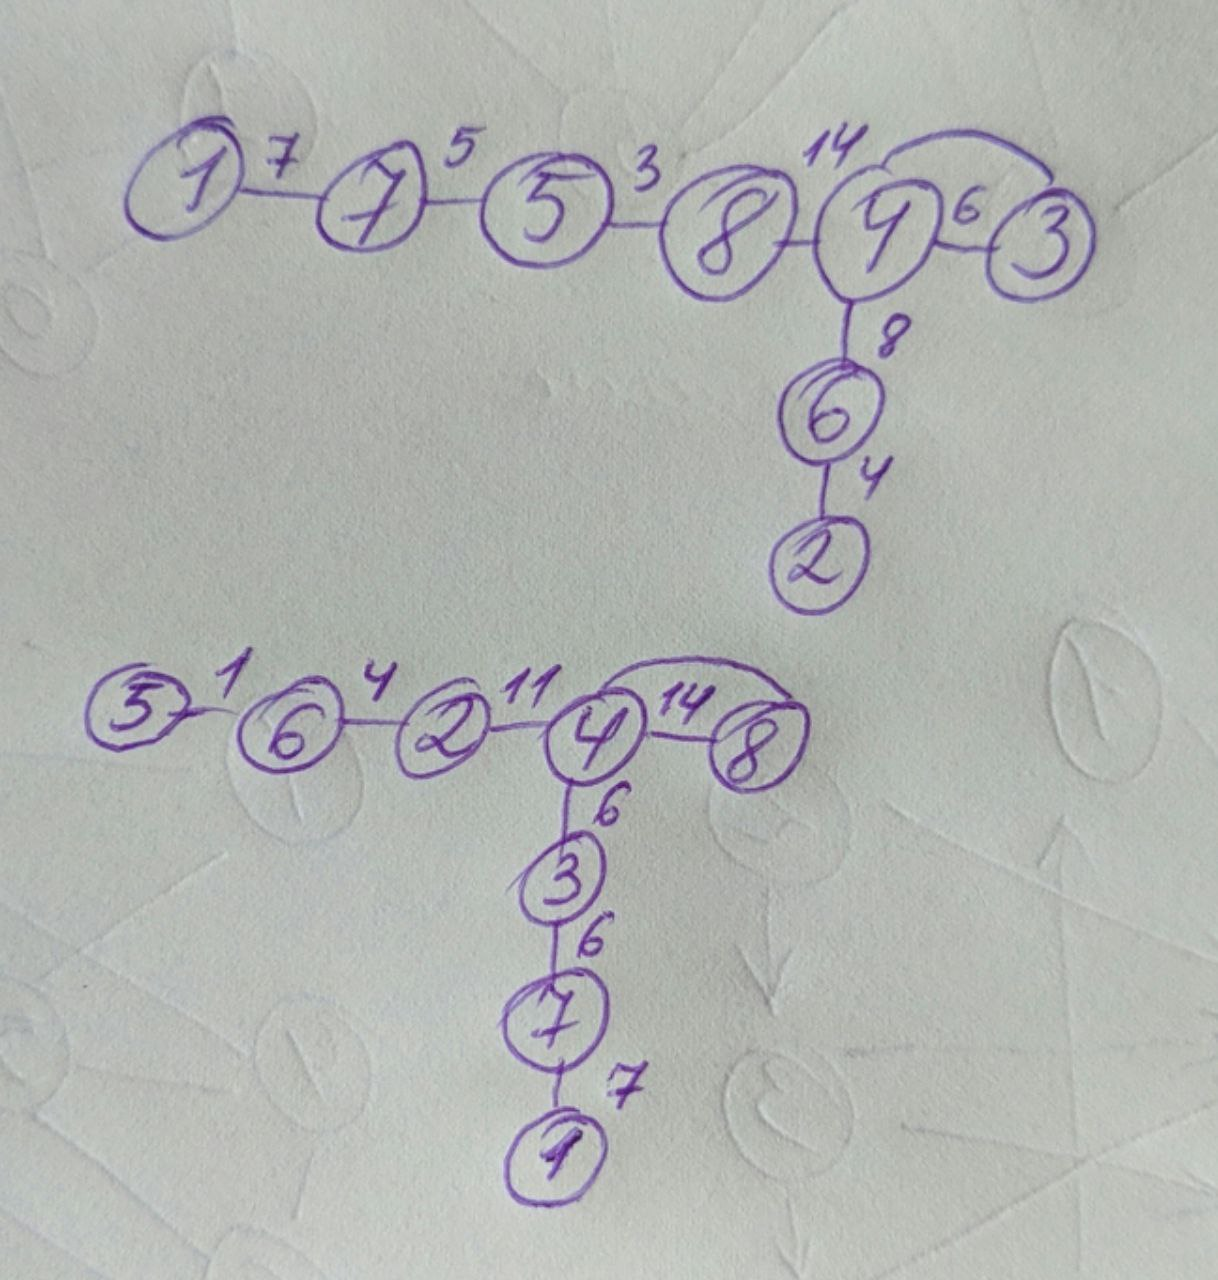 1 7 7 5 5 3 8 14 4 6 3
8
6
4
2
5 1 6 4 2 11 4 14 8
6
3
6
7
7
1